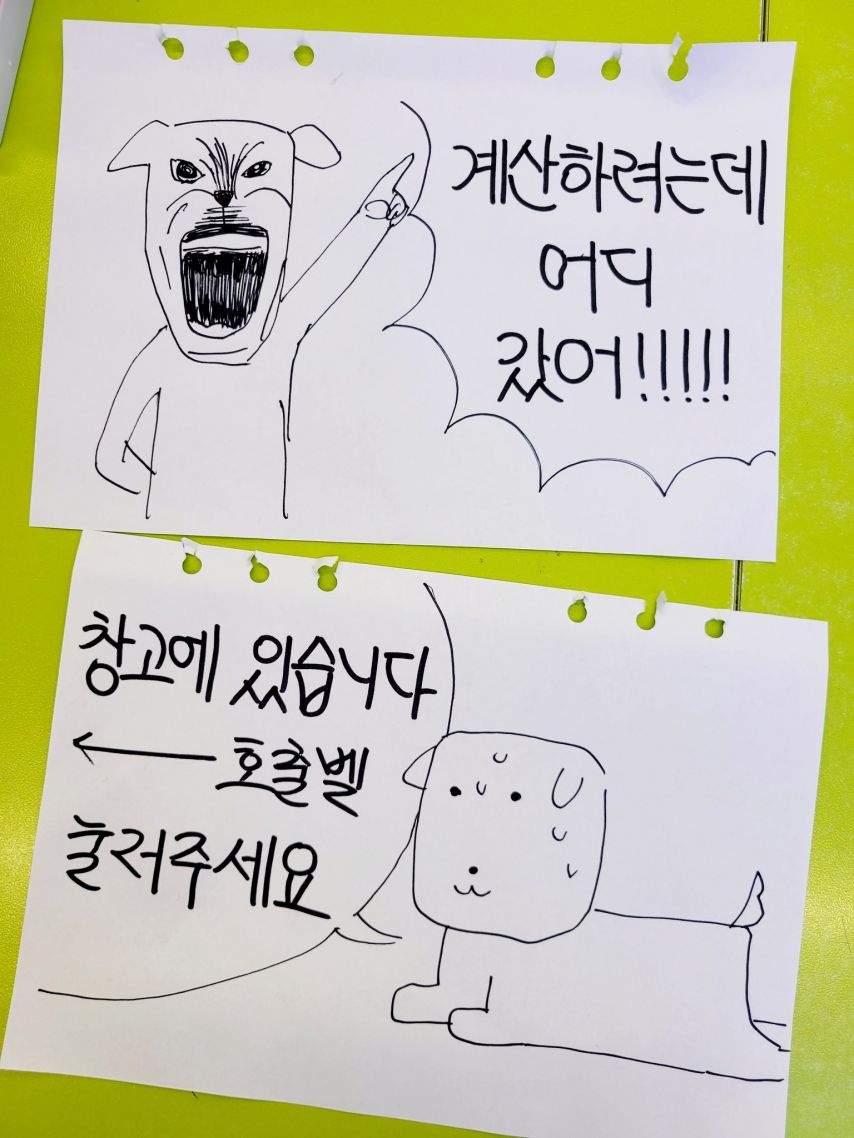 계산하려는데
어디
갔어!!!!!
창고에 있습니다
← 호출벨
눌러주세요